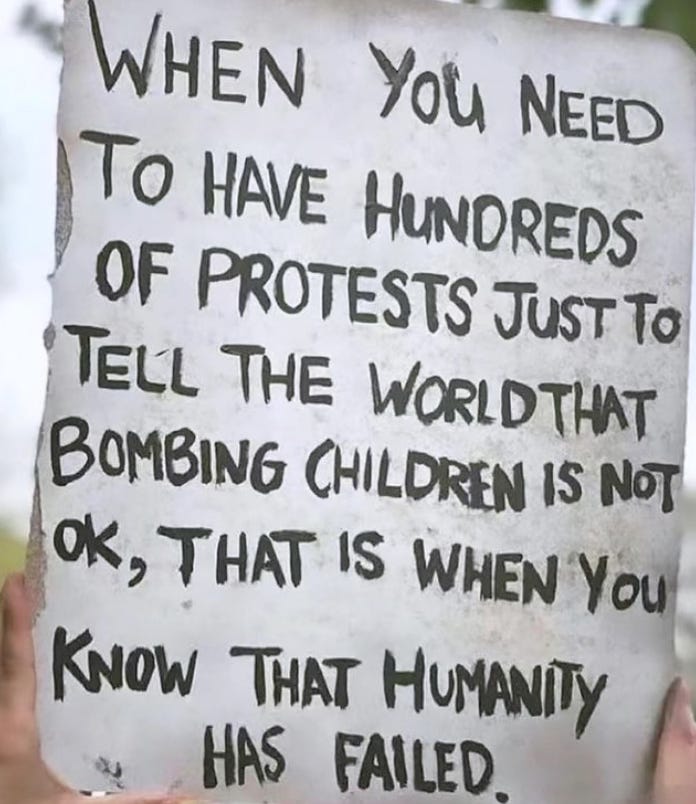 WHEN YOU NEED
TO HAVE HUNDREDS
OF PROTESTS JUST TO
TELL THE WORLD THAT
BOMBING CHILDREN IS NOT
OK, THAT IS WHEN YOU
KNOW THAT HUMANITY
HAS FAILED.